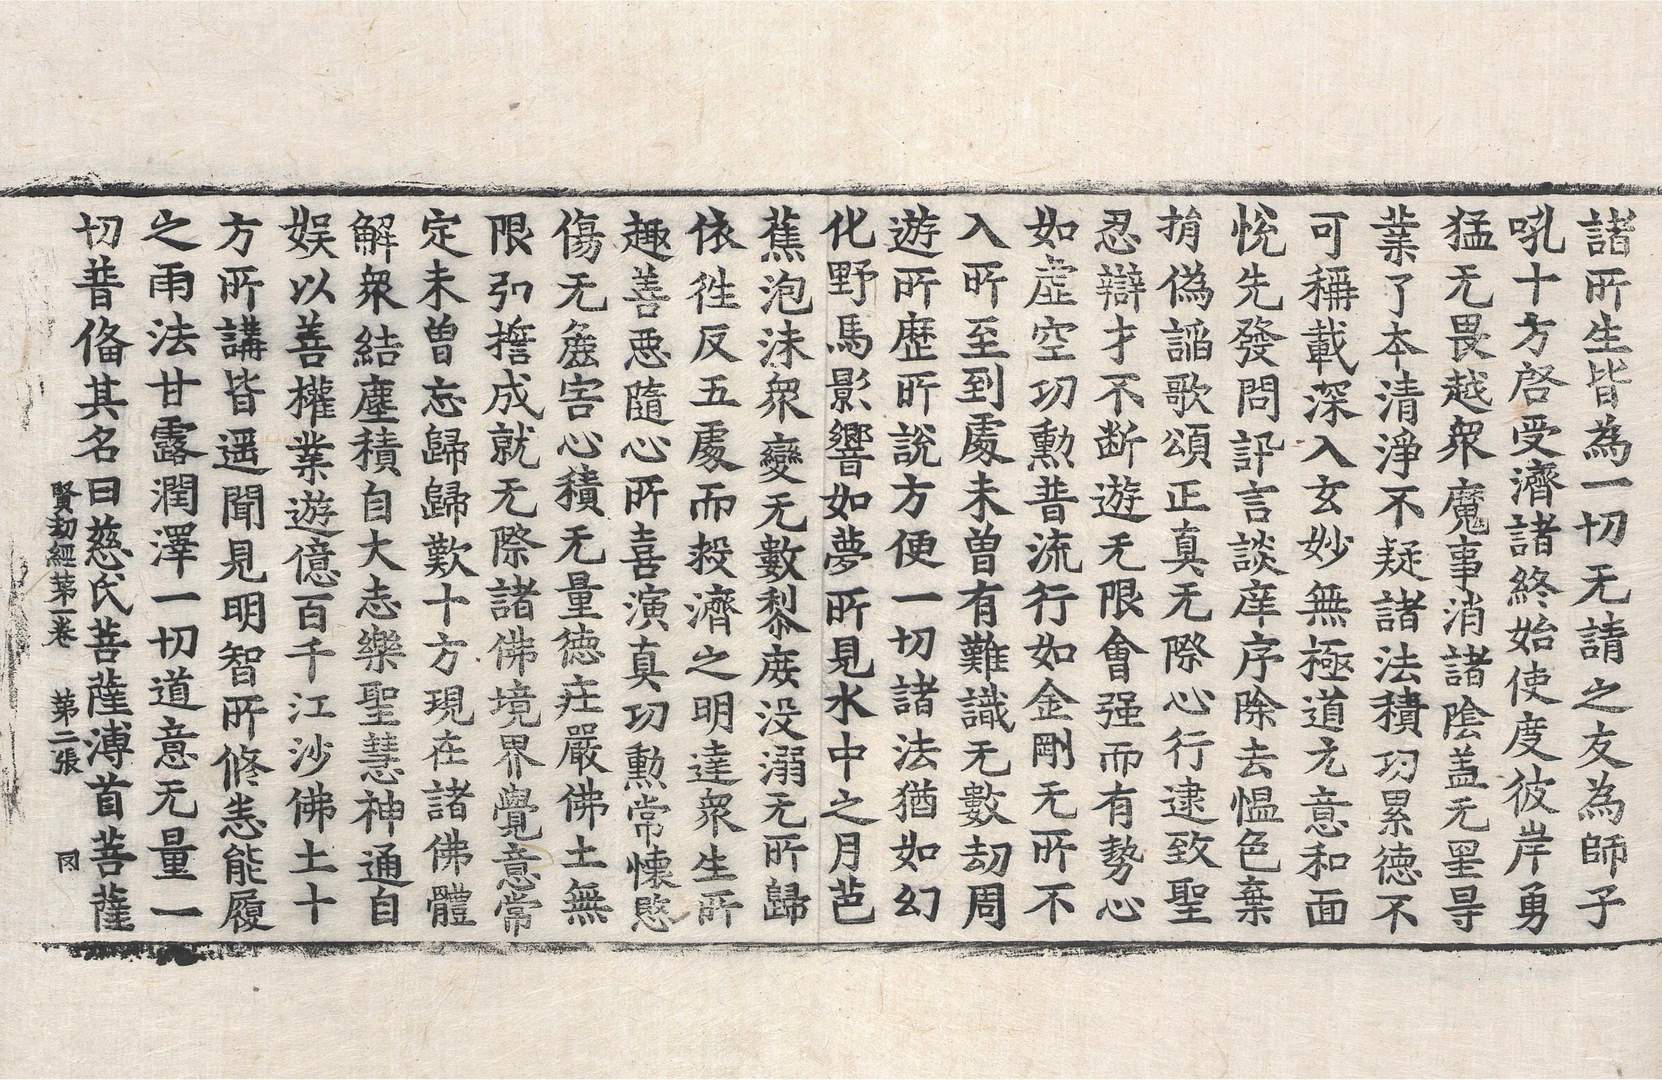 諸所生皆為一切无請之友為師子
吼十方啓受濟諸終始使度彼岸勇
猛无畏越衆魔事消諸陰盖无罣㝵
業了本清淨不疑諸法積功累德不
可稱載深入玄妙無極道元意和面
悅先發問訊言談庠序除去愠色棄
捐偽謟歌頌正真无際心行逮致聖
忍辯才不断遊无限會强而有勢心
如虛空功勲普流行如金剛无所不
入所至到處未曽有難識无數劫周
遊所歷所說方便一切諸法猶如幻
化野馬影響如夢所見水中之月芭
蕉泡沫衆變无數黎庶没溺无所歸
依徃反五處而救濟之明達衆生所
趣善惡隨心所喜演真功勲常懷愍
傷无麁害心積无量德庄嚴佛土無
限引擔成就无際諸佛境界覺意常
定未曽忘歸歸歎十方現在諸佛體
解衆結塵積自大志樂聖慧神通自
娛以善權業遊億百千江沙佛土十
方所講皆遥聞見明智所修恙能履
之雨法甘露潤澤一切道意无量一
切普俻其名曰慈氏菩薩溥首菩薩
賢劫經第一卷 第二張 罔